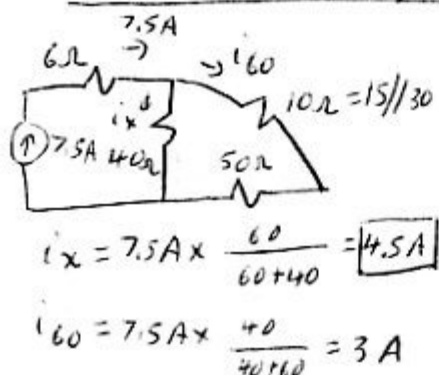 7.5A
→
6Ω
→ i60
10Ω = 15//30
ix
↑ 7.5A 40Ω
50Ω
ix = 7.5A x 60 / 60+40 = 4.5A
i60 = 7.5A x 40 / 40+60 = 3 A